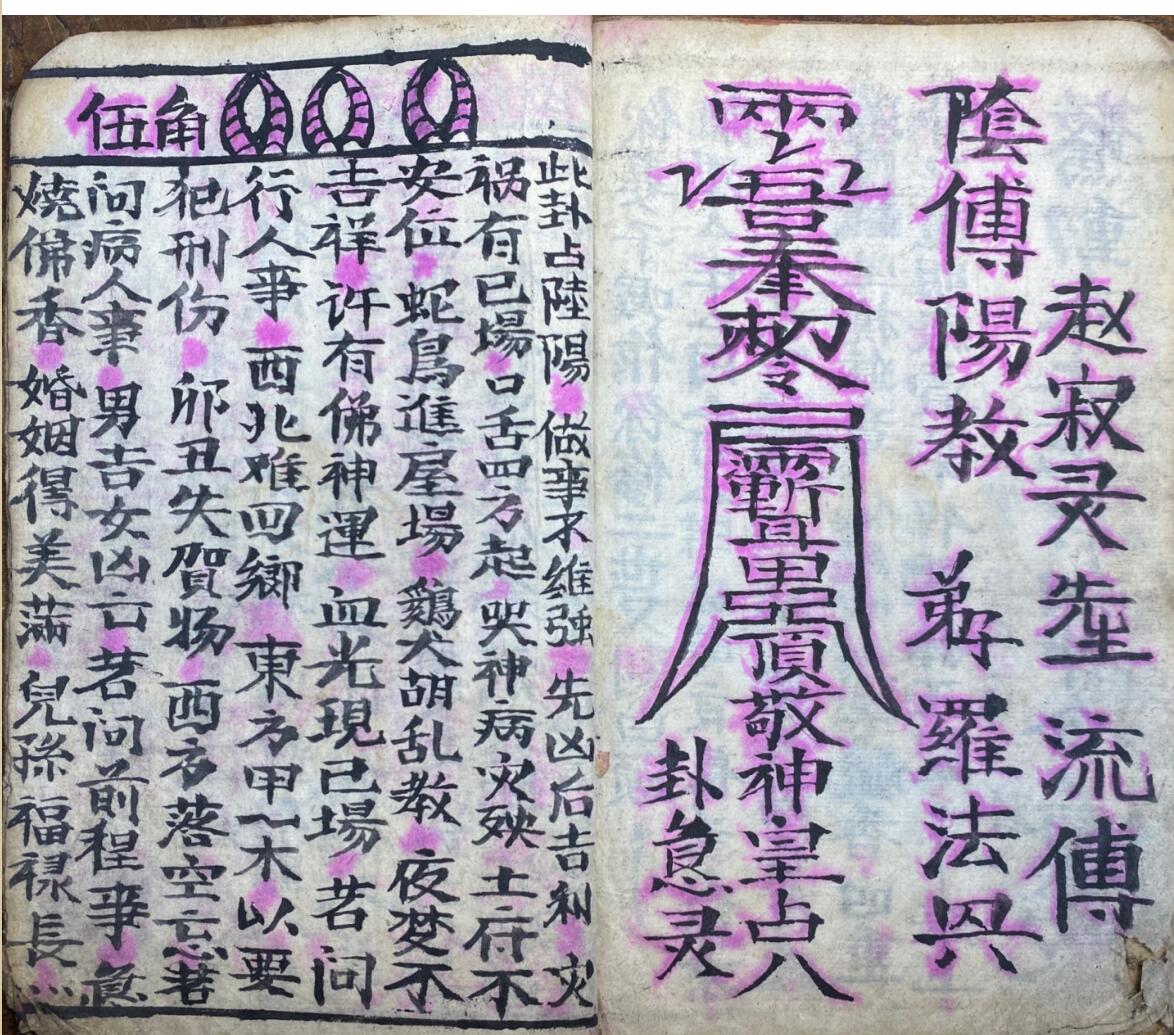 赵寂灵先生 流傳
陰傳陽教 弟子羅法兴
頂敬神皇占八
卦急灵
伍角
此卦占陸陽 做事不維強 先凶后吉利 灾
祸有已場 口舌四方起 哭神病灾殃 土府不
安位 蛇鳥進屋場 鷄犬胡乱教 夜梦不
吉祥 许有佛神運 血光現己場 若问
行人事 西北难回鄉 東方甲乙木 以要
犯刑伤 卯丑失贺物 西方落空亡 若
问病人事 男吉女凶亡 若问前程事 急
燒佛香 婚姻得美滿 兒孫福禄長